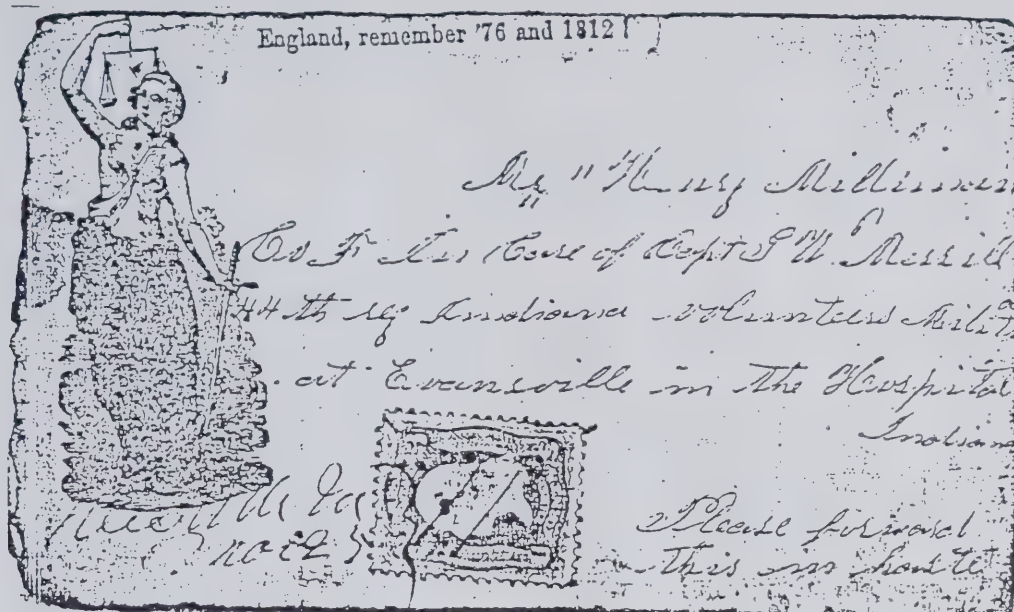 England, remember '76 and 1812!
Mr " Henry Milliman
Co F In Care of Capt G W Merrill
44th reg Indiana volunteers Milit
at Evansville in the Hospital
Indiana
Please forward
this in haste